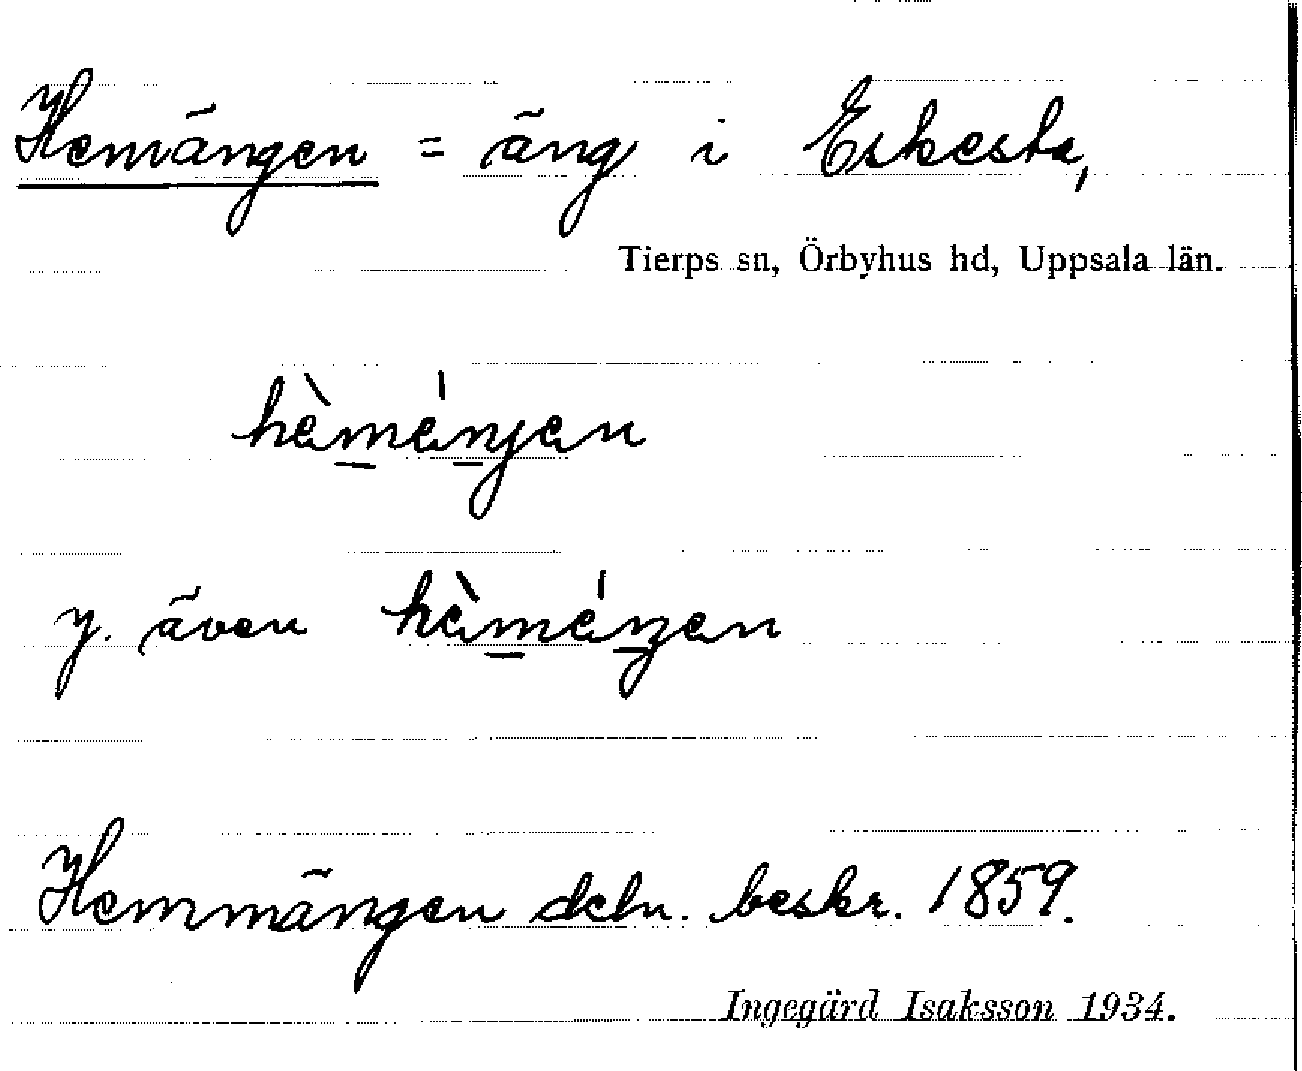 Hemängen = äng i Eskesta,
Tierps sn, Örbyhus hd, Uppsala län.
hèménjen
y. även
Hemmängen deln. beskr. 1859.
Ingegärd Isaksson 1934.